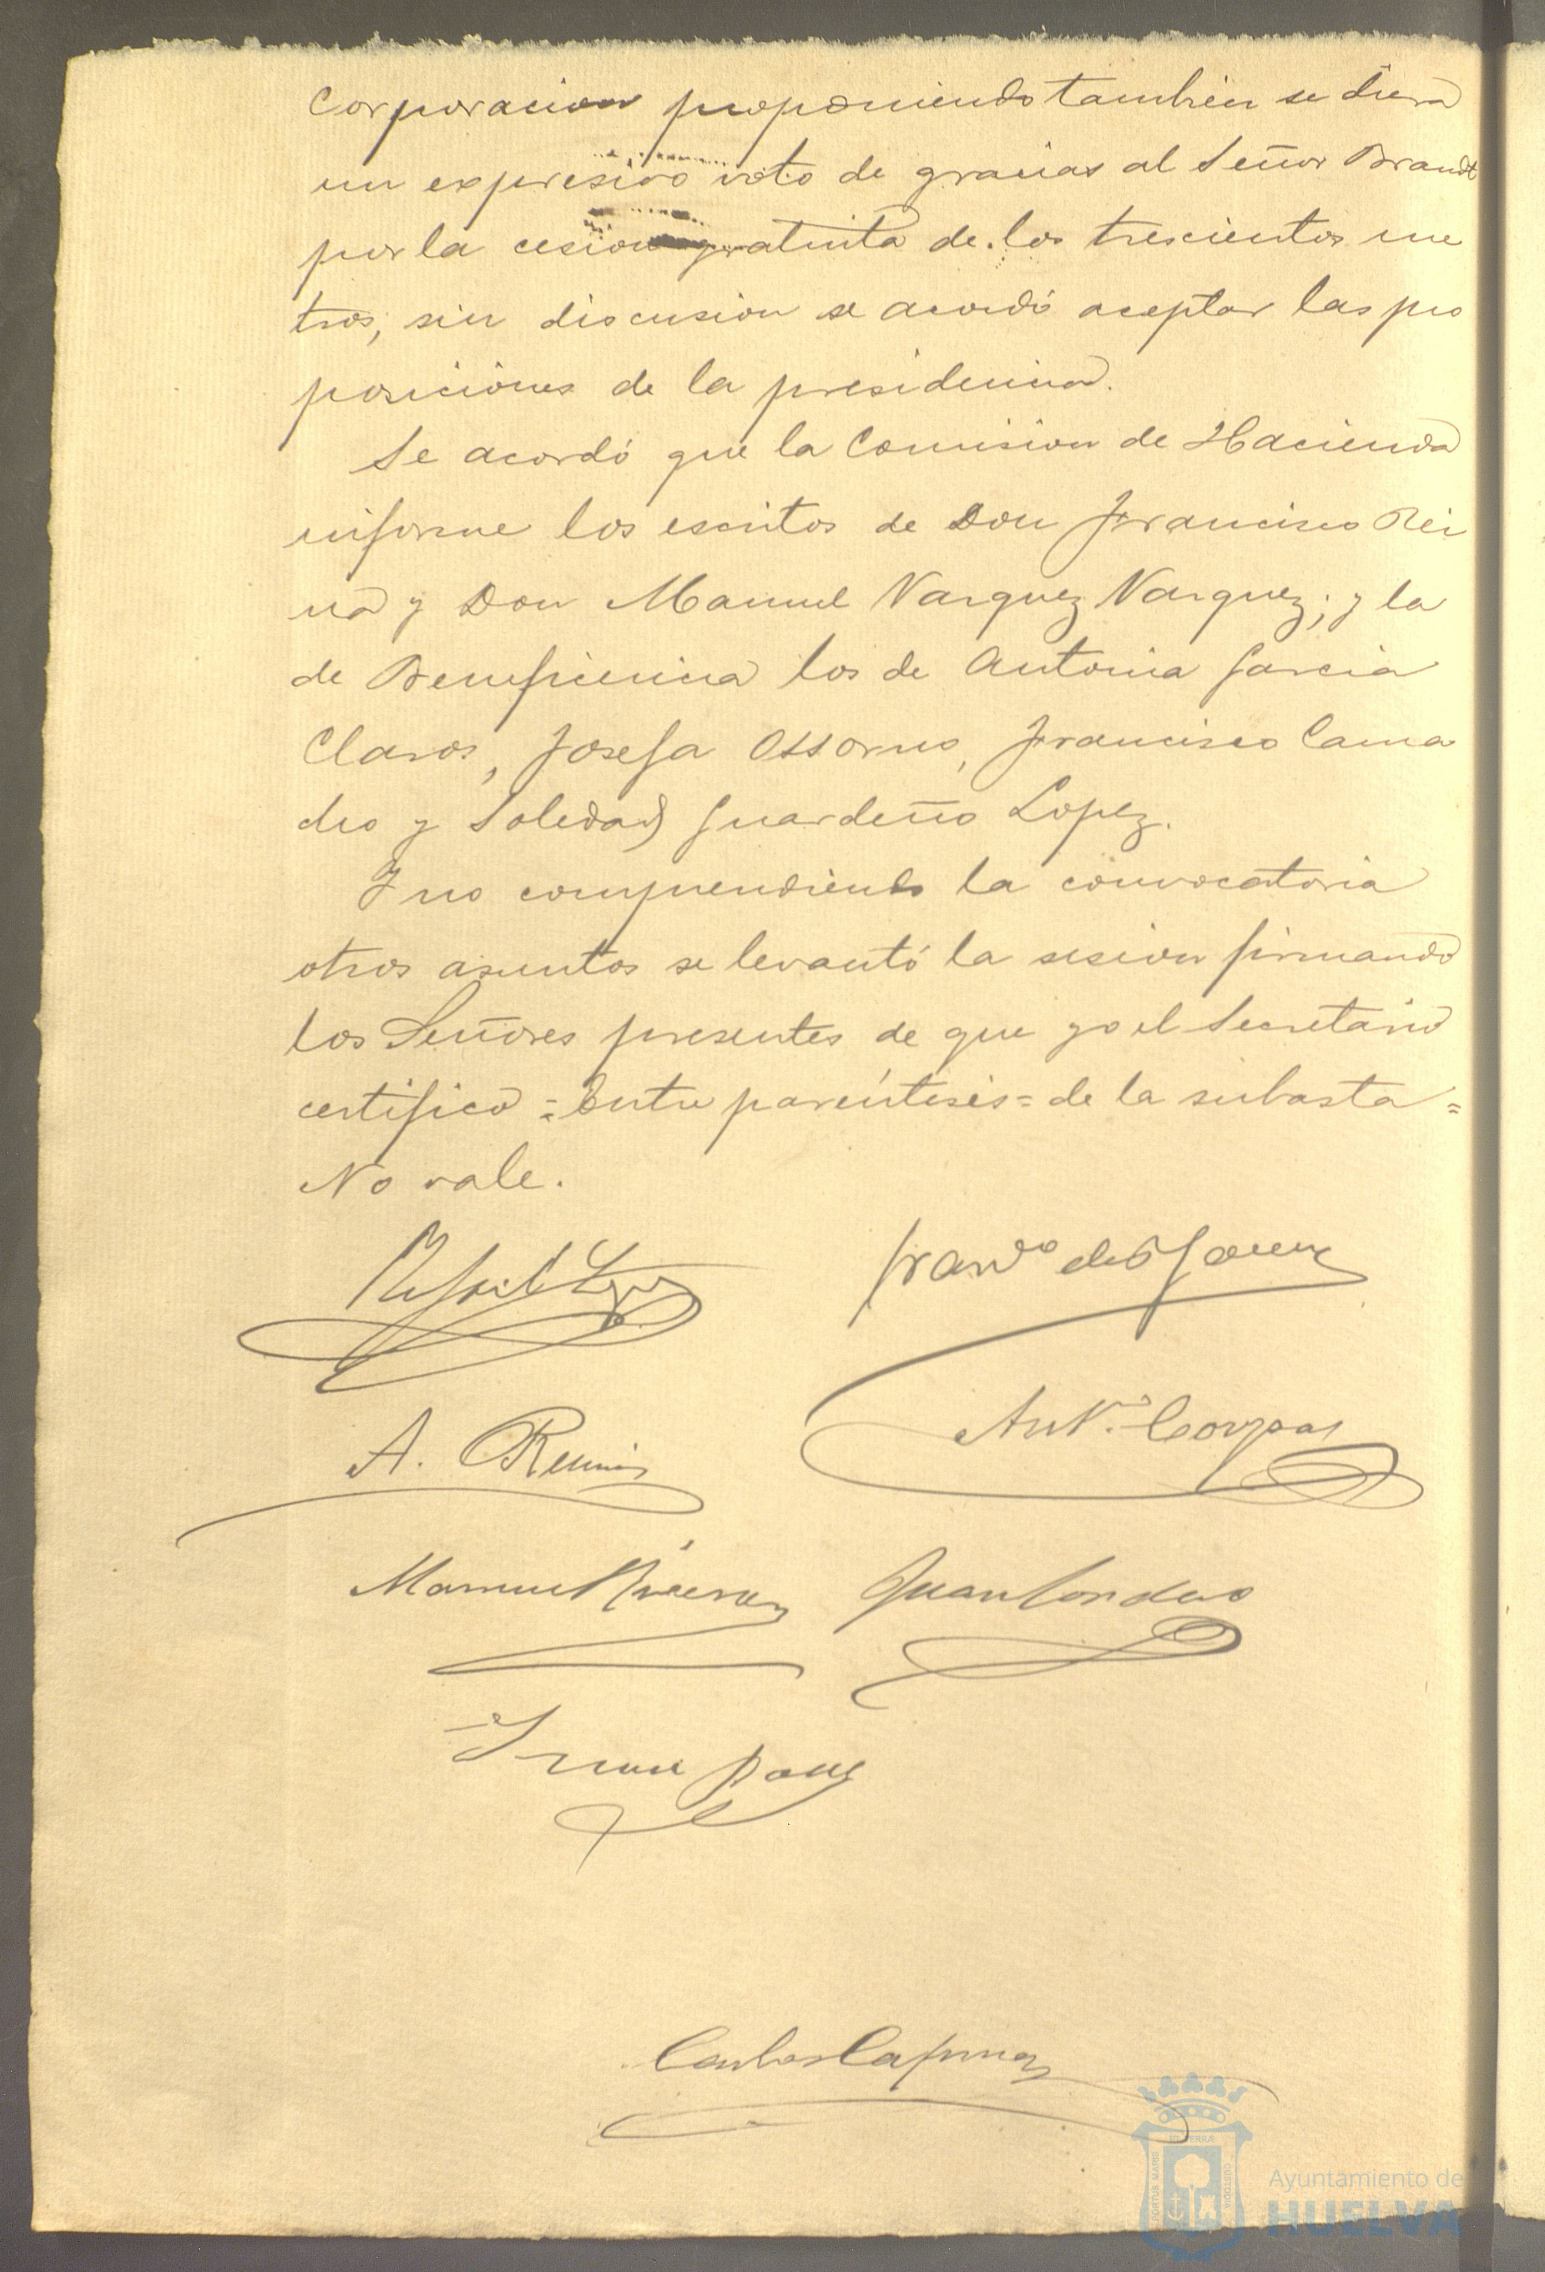 Corporacion proponiendo tambien se diera
un expresivo voto de gracias al Señor Brandt
por la cesion gratuita de los trescientos me
tros, sin discusion se acordó aceptar las pro
posiciones de la presidencia.
Se acordó que la Comision de Hacienda
informe los escritos de Don Francisco Rei
na y Don Manuel Vazquez Vazquez; y la
de Beneficencia los de Antonia Garcia
Claros, Josefa Ossorno, Francisco Cama
cho y Soledad Guardeño Lopez.
Y no comprendiendo la convocatoria
otros asuntos se levantó la sesion firmando
los Señores presentes de que yo el Secretario
certifico = Entre paréntesis = de la subasta =
No vale.
Rafael
Fran.co de P.
A.
Ant.o Corpas
Manuel
Juan
Carlos
PORTUS MARIS
ET TERRÆ
CUSTODIA
Ayuntamiento de
HUELVA